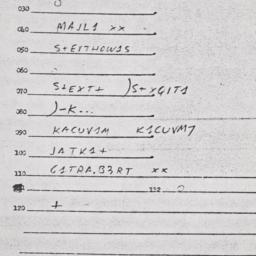 030
040 MAJL1 xx
050 S+EITHOW1S
060
070 S+EXT+ )S+XGIT1
080 )-K...
090 KACUV1M K1CUVM7
100 JATK1+
110 G1TRA.B3RT xx
112
120 +